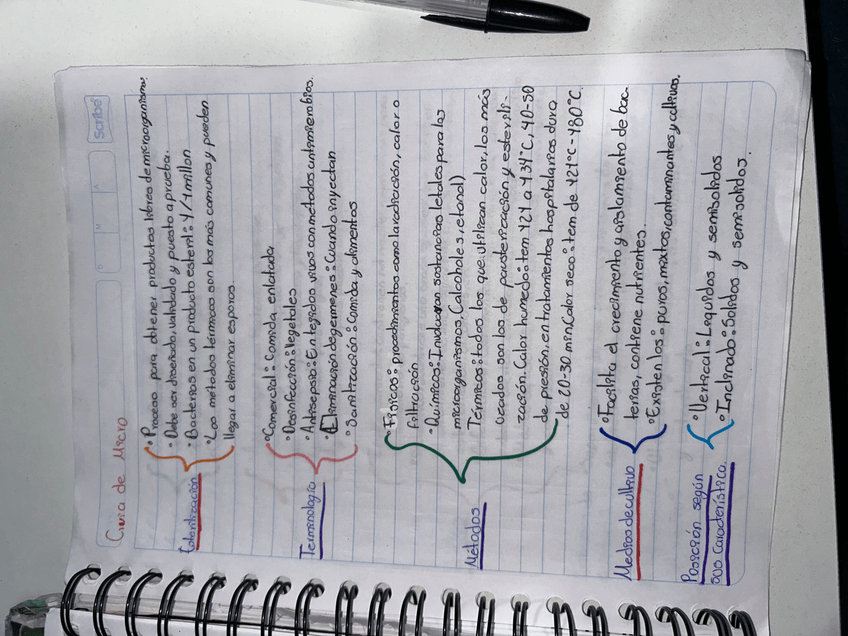 Scribe
D M A
Civia de Micro
Esterilización
•Proceso para obtener productos libres de microorganismos.
•Debe ser diseñado, validado y puesto a prueba.
•Bacterias en un producto esteril: 1/1 millon
•Los métodos térmicos son los más comunes y pueden
llegar a eliminar esporos.
Terminología
•Comercial: Comida enlatada
•Desinfección: Vegetales
•Antisepsia: En tejidos vivos con metodos antimicrobios.
•Eliminación de germenes: Cuando inyectan
•Sanitización: Comida y alimentos
Métodos
•Físicos: procedimientos como la radiación, calor o
filtración
•Químicos: Involucran sustancias letales para los
microorganismos, Calcoholes, etanol)
Térmicos: todos los que utilizan calor, los más
usados son los de pasterización y esterili-
zación. Calor humedo: tem 121 a 134°C, 40-50
de presión, en tratamientos hospitalarios dura
de 20-30 min Calor seco: tem de 121°C-180°C.
Medios de cultivo
•Facilita el crecimiento y aislamiento de bac-
terias, contiene nutrientes.
•Existen los: puros, mixtos, contaminantes y cultivos.
Posición según
sus característica.
•Vertical: Liquidos y semisolidos
•Inclinado: Solidos y semisolidos.